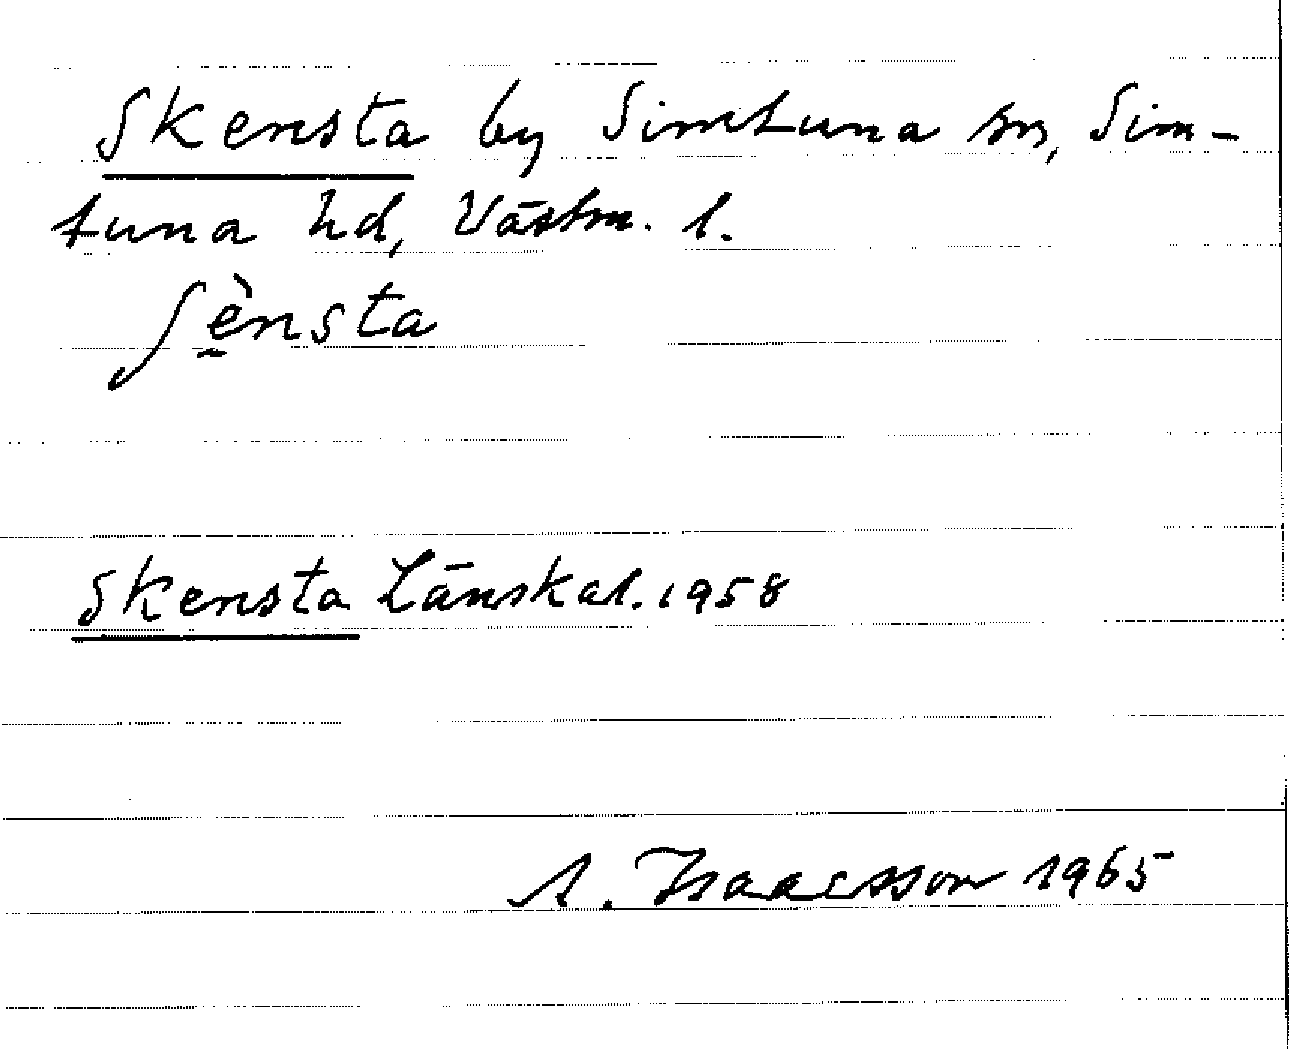 Skensta by Simtuna sn, Sim-
tuna hd, Västm. l.
ʃè̠nsta
Skensta Länskal. 1958
A. Isaacsson 1965